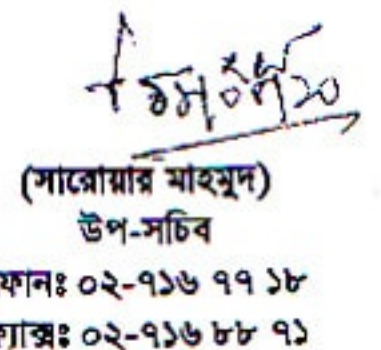 (সারোয়ার মাহমুদ)
উপ-সচিব
ফোনঃ ০২-৭১৬ ৭৭ ১৮
ফ্যাক্সঃ ০২-৭১৬ ৮৮ ৭১